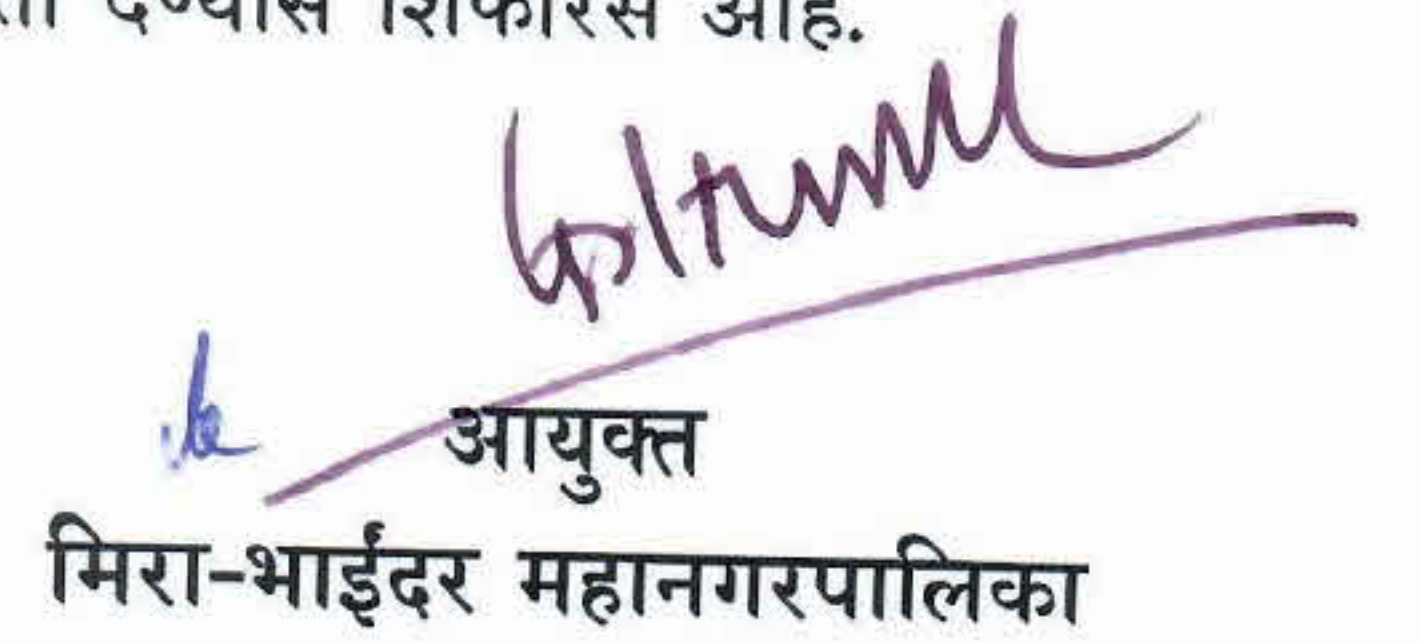 देण्यास शिफारस आहे.
आयुक्त
मिरा-भाईंदर महानगरपालिका